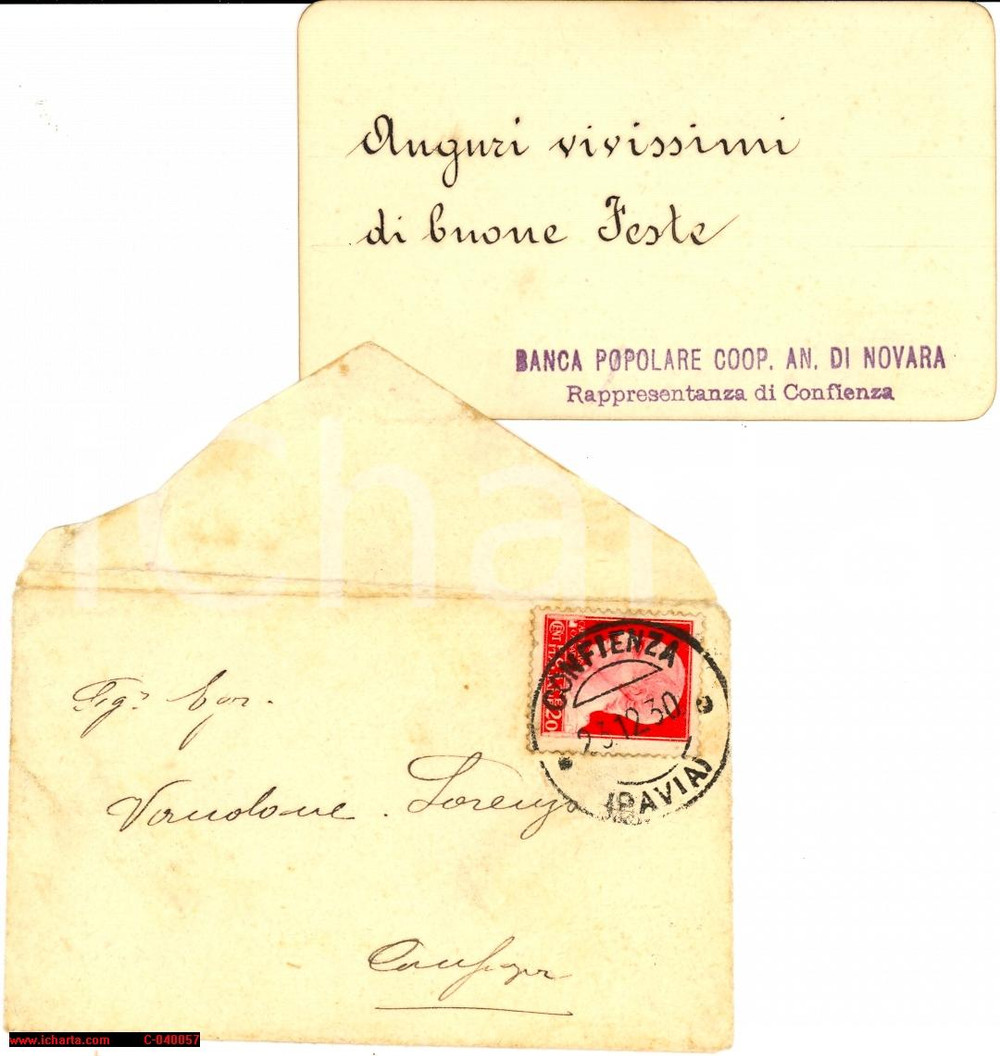 Auguri vivissimi
di buone Feste
BANCA POPOLARE COOP. AN. DI NOVARA
Rappresentanza di Confienza
iCharta
CENT 20
CONFIENZA
23.12.30
(PAVIA)
Sigr
Vandone Lorenzo
Confienza
www.icharta.com C-040057